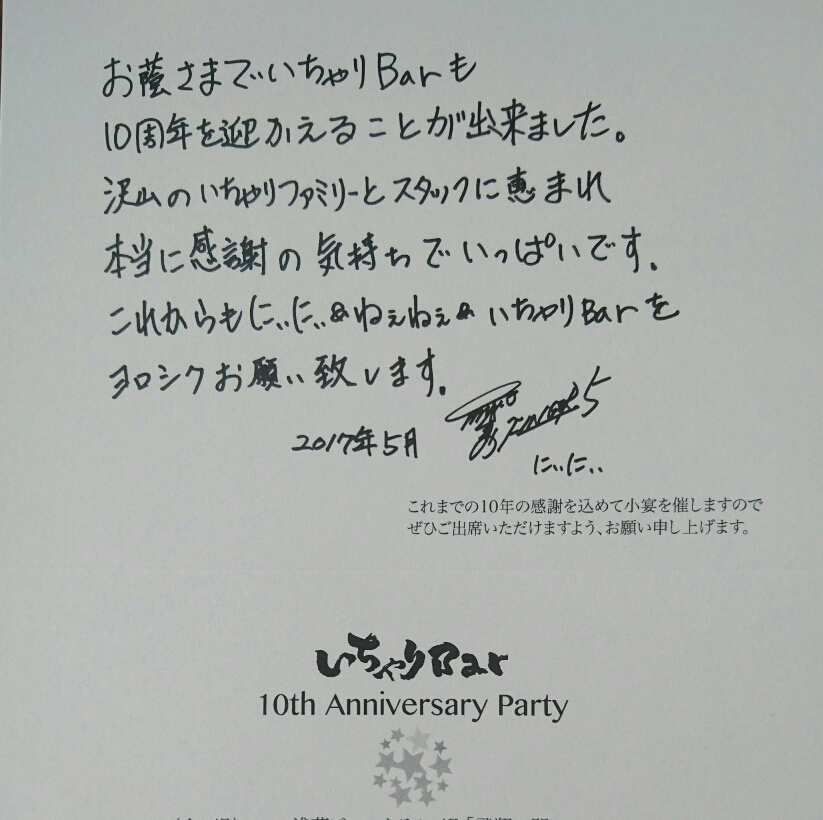 お蔭さまでいちゃりBarも
10周年を迎かえることが出来ました。
沢山のいちゃりファミリーとスタッフに恵まれ
本当に感謝の気持ちでいっぱいです。
これからもにぃにぃ&ねぇねぇ&いちゃりBarを
ヨロシクお願い致します。
2017年5月
にぃにぃ
これまでの10年の感謝を込めて小宴を催しますので
ぜひご出席いただけますよう、お願い申し上げます。
いちゃりBar
10th Anniversary Party